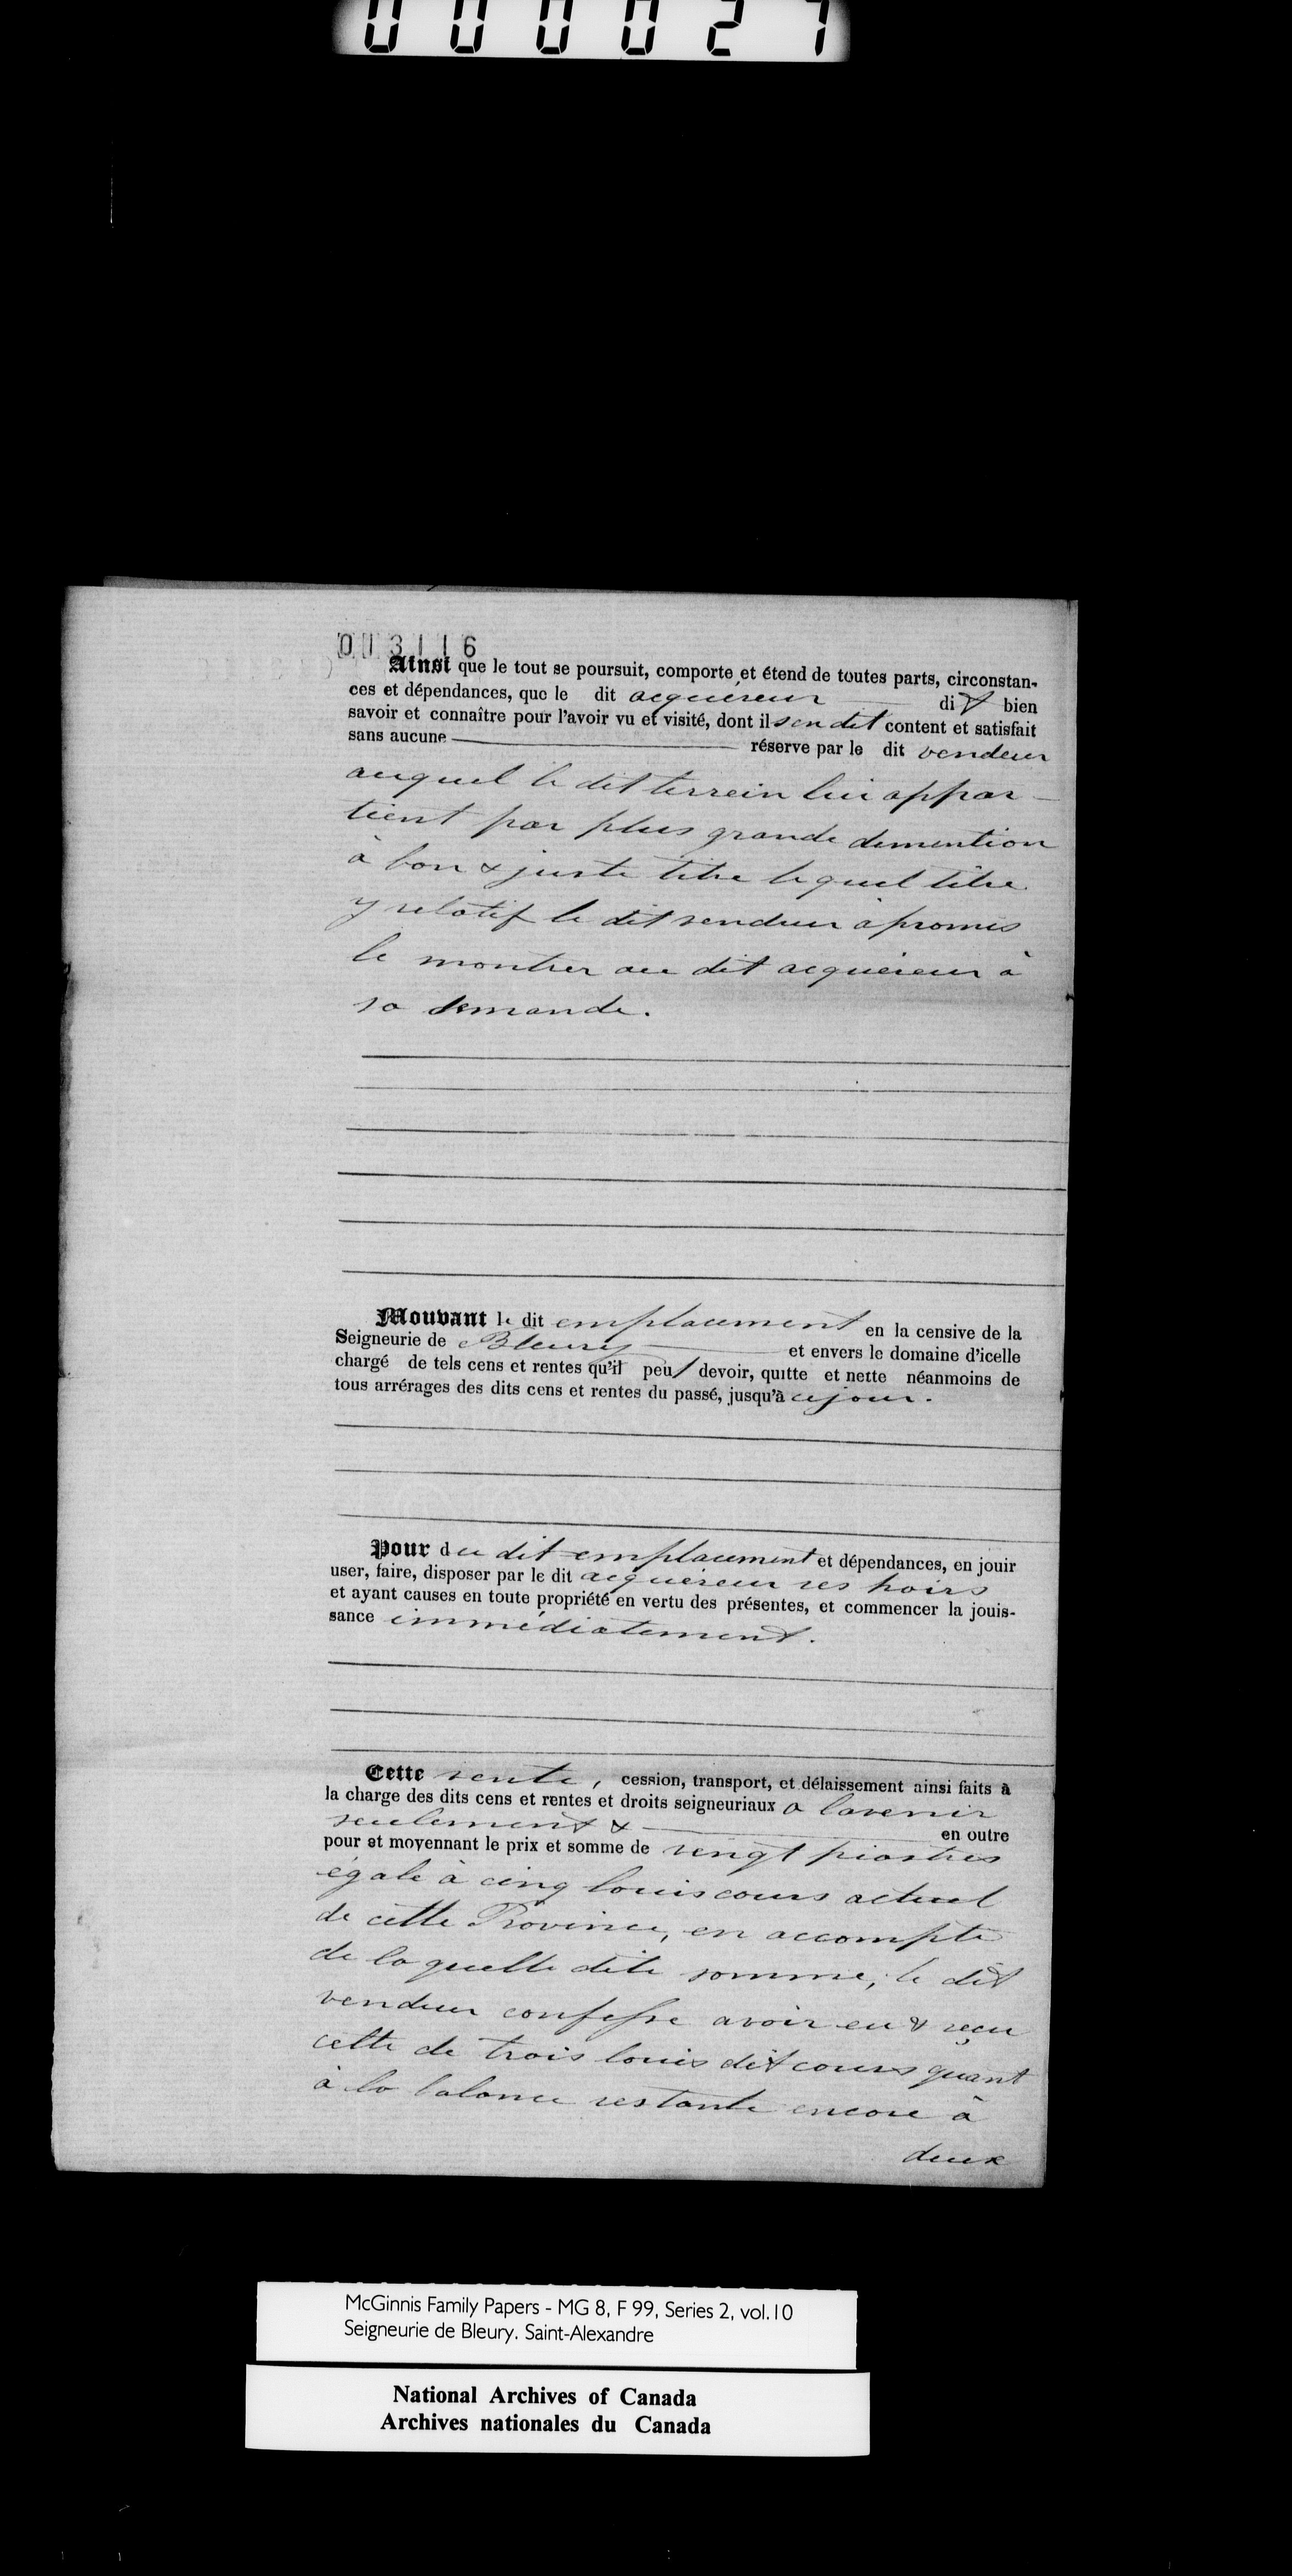 000027
003116
Ainsi que le tout se poursuit, comporte et étend de toutes parts, circonstan-
ces et dépendances, que le dit acquéreur dit bien
savoir et connaître pour l'avoir vu et visité, dont il s'en dit content et satisfait
sans aucune réserve par le dit vendeur
auquel le dit terrein lui appar-
tient par plus grande demention
à bon & juste titre lequel titre
y relatif le dit vendeur a promis
le montrer au dit acquéreur à
sa demande.
Mouvant le dit emplacement en la censive de la
Seigneurie de Bleury et envers le domaine d'icelle
chargé de tels cens et rentes qu'il peut devoir, quitte et nette néanmoins de
tous arrérages des dits cens et rentes du passé, jusqu'à ce jour.
Pour du dit emplacement et dépendances, en jouir
user, faire, disposer par le dit acquéreur ses hoirs
et ayant causes en toute propriété en vertu des présentes, et commencer la jouis-
sance immédiatement.
Cette vente, cession, transport, et délaissement ainsi faits à
la charge des dits cens et rentes et droits seigneuriaux a lavenir
seulement & en outre
pour et moyennant le prix et somme de vingt piastres
égale à cinq louis cours actuel
de cette Province, en accompte
de laquelle dite somme, le dit
vendeur confesse avoir eu & reçu
celle de trois louis dit cours quant
à la balance restante encore à
deux
McGinnis Family Papers - MG 8, F 99, Series 2, vol.10
Seigneurie de Bleury. Saint-Alexandre
National Archives of Canada
Archives nationales du Canada